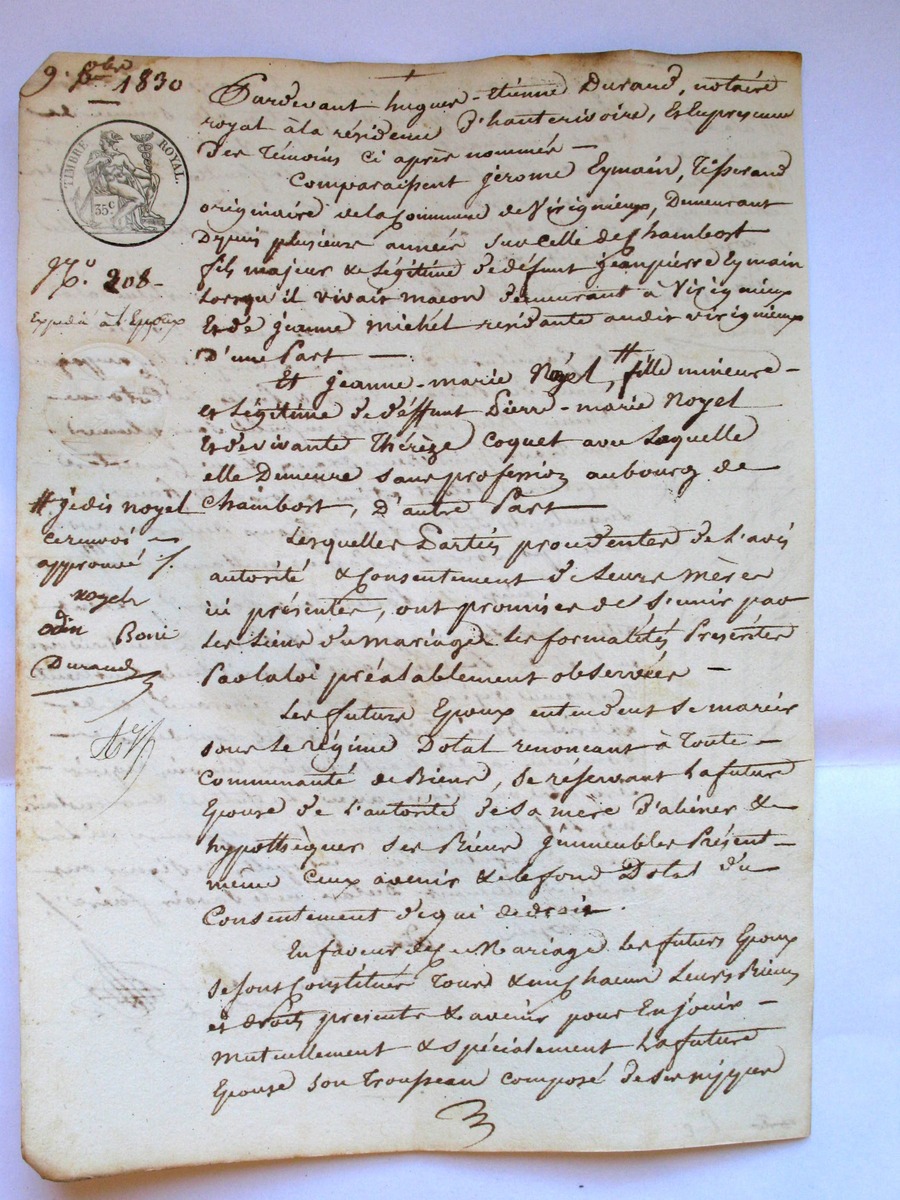 9. 8bre 1830
TIMBRE ROYAL.
35 C
N.o 208
Expédié à l'Epoux
Pardevant hugues-Etienne Durand, notaire
royal à la résidence d'hauterivoire, Et En presence
Des Témoins ci après nommés —
Comparaissent jérome Eymain, Tisserand
originaire de la Commune de Virignieux, Demeurant
Depuis plusieurs années sur celle de Chambost
fils majeur & Légitime de défunt jean pierre Eymain
Lorsqu'il vivais macon demeurant à Virignieux
Et de jeanne michel residante audit virignieux
D'une Part —
Et jeanne-marie Noyel, # fille mineure —
et Légitime de déffunt Pierre-marie Noyel
Et de vivante Thérèze Coquet avec Laquelle
elle Demeure sans profession au bourg de
Chambost, D'autre Part —
# je dis noyel
ce renvoi
approuvé
noyel
Boni
Durand
Lesquelles Parties procedentes de l'avis
autorité & Consentement de leurs mères
ici présentes, ont promises de S'unir par
Les Liens du mariage Les formalités Presentes
Par la loi préalablement observées —
Les future Epoux entendent se mariér
sous le régime Dotal renoncant à Toute —
Communauté de Biens, se réservant La future
Epouse de l'autorité de sa mère D'aliéner &
hypothèquer ses Biens jmmeubles Présent —
même Ceux avenir & le fond Dotal du
Consentement de qui de droit.
En faveur de ce Mariage Les futurs Epoux
se sont Constitués Tous & un chacun Leurs Biens
et droits presents & avenir pour En jouir —
mutuellement & spécialement La future
Epouse son Trousseau composé de ses nippes